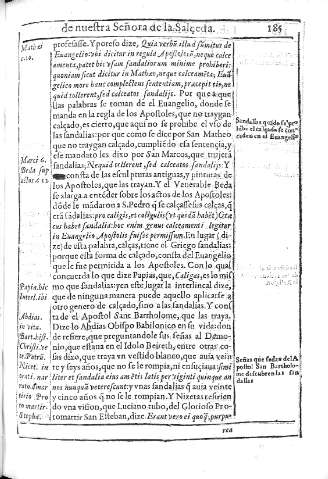 de nuestra Señora de la Salceda. 185
professasse. Y por esso dize, Quia verbū illud sumitur de
Euangelio: vbi dicitur in regula Apostolorū, neque calce
amenta, patet hic vsum sandaliorum minime prohiberi:
quoniam sicut dicitur in Matheo, neque calceamēta, Euā
gelico more hanc complectens sententiam, praecepit tion, ne
quid tollerent, sed calceatos sandalijs. Por que à que
llas palabras se toman del Euangelio, donde se
manda en la regla de los Apostoles, que no traygan
calçado, es cierto, que aqui no se prohibe el vso de
las sandalias: por que como se dize por San Matheo
que no traygan calçado, cumpliēdo essa sentencia, y
ele mandato les dixo por San Marcos, que trujessē
sandalias, Nequid tollerent, sed calceatos sandalijs. Y
consta de las esculpturas antiguas, y pinturas, de
los Apostoles, que las trayan. Y el Venerable Beda
se alarga a entēder sobre los actos de los Apostoles:
dōde le mādaron a S. Pedro q̄ se calçasse sus calças, q̄
erā sādalias: pro caligis, et caligulis (et qui dā habēt) Græ
cus habet sandalia: hoc enim genus calceamenti legitur
in Euangelio, Apostolis fuisse permissum. En lugar (di
ze) de esta palabra, calças, tiene el Griego sandalias:
porque esta forma de calçado, consta del Euangelio
que le fue permitida a los Apostoles. Con lo qual
concuerda lo que dize Papias, que, Caligas, es lo mis
mo que sandalias: y en este lugar la interlineal dize,
que de ninguna manera puede aquello aplicarse a
otro genero de calçado, sino a las sandalias. Y con
ta de el Apostol Sant Bartholome, que las traya.
Dize lo Abdias Obispo Babilonico en su vida: don
de refiere, que preguntandole sus señas al Demo-
nio, que estaua en el Idolo Beireth, entre otras co
sas dixo, que traya vn vestido blanco, que auia vein
te y seys años, que no se le rompia, ni ensuziaua, si
liter et sandalia eius am etis latis per viginti quinque an
nos nunquā veterescunt: y vnas sandalias q̄ auia veinte
y cinco años q̄ no se le rompian. Y Nizetas refiriēn
do vna vision, que Luciano tubo, del Glorioso Pro
tomartir San Esteban, dize. Erant vero ei quoq̄, purpu
rea
Mathei
c. 10.
Marci 6.
Beda sup
actos c. 12
Papia. hic
Interl. ibi
Abdias
in vita.
Bart. hist.
Christi. ve
te. Patrū.
Nicet. in
tio Pro
to martir.
Stepha.
Sandalias quādo se pro
hibe el calçado se con-
ceden en el Euangelio
Señas que haze del A
postol San Bartholo-
me descubren las san
dalias